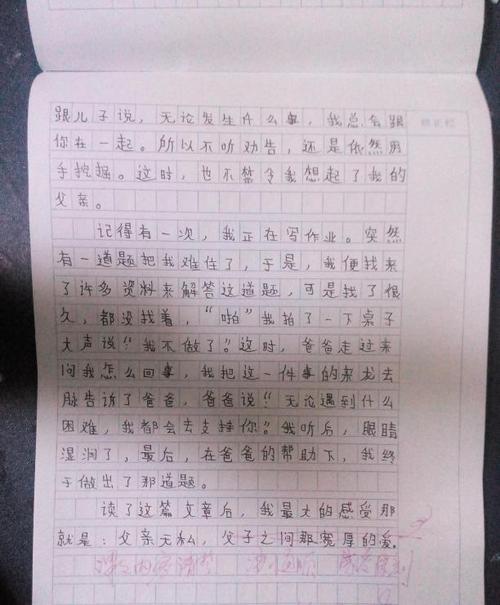 跟儿子说，无论发生什么事，我总会跟
你在一起。所以不听劝告，还是依然用
手挖掘。这时，也不禁令我想起了我的
父亲。
记得有一次，我正在写作业。突然
有一道题把我难住了，于是，我便找来
了许多资料来解答这道题，可是找了很
久，都没找着，“啪”我拍了一下桌子
大声说“我不做了。”这时，爸爸走过来
问我怎么回事，我把这一件事的来龙去
脉告诉了爸爸，爸爸说“无论遇到什么
困难，我都会去支持你。”我听后，眼睛
湿润了，最后，在爸爸的帮助下，我终
于做出了那道题。
读了这篇文章后，我最大的感受那
就是：父亲无私，父子之间那宽厚的爱。